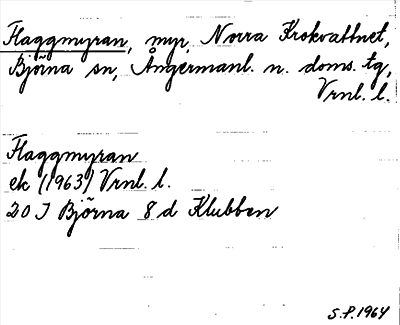 Flaggmyran, myr, Norra Krokvattnet,
Björna sn, Ångermanl. n. doms. tg,
Vrnl. l.
Flaggmyran
ek (1963) Vrnl. l.
20 J Björna 8 d Klubben
S.P. 1964